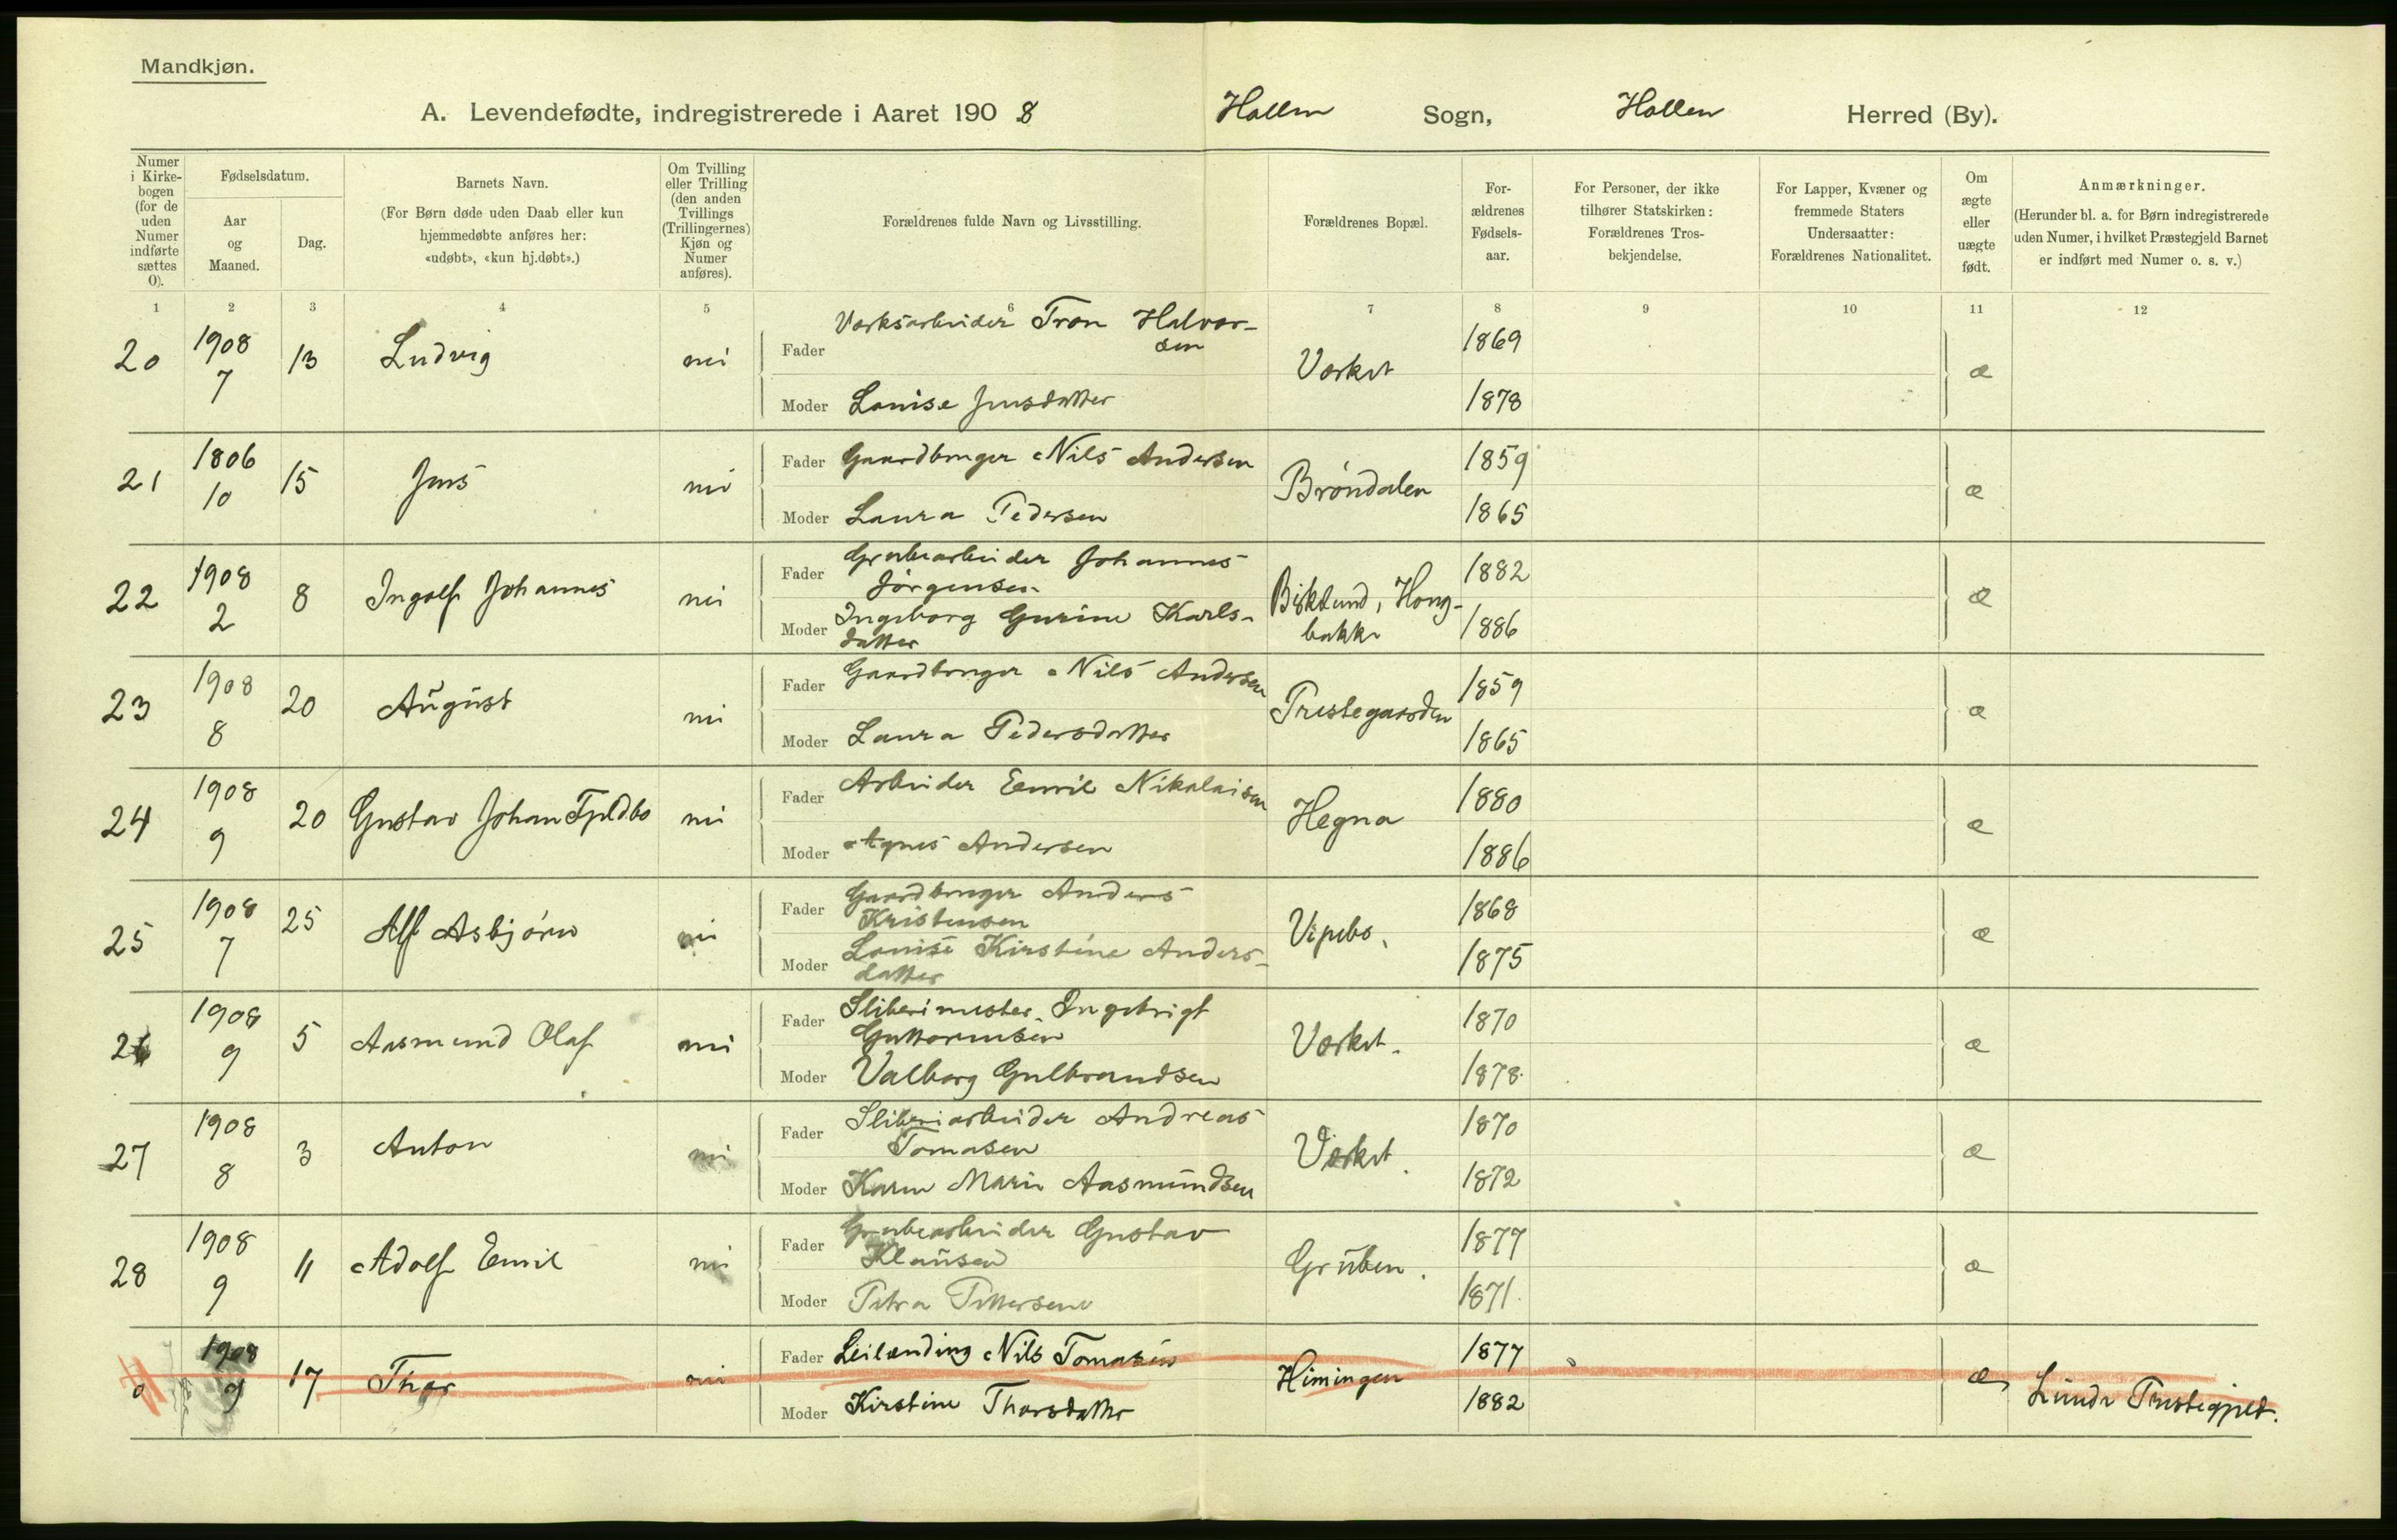 Mandkjøn.
A. Levendefødte, indregistrerede i Aaret 1908 Hollen Sogn, Hollen Herred (By).
Numer i Kirke-bogen (for de uden Numer indførte sættes 0).
Fødselsdatum.
Aar og Maaned.
Dag.
Barnets Navn.
(For Børn døde uden Daab eller kun hjemmedøbte anføres her: «udøbt», «kun hj.døbt».)
Om Tvilling eller Trilling (den anden Tvillings (Trillingernes) Kjøn og Numer anføres).
Forældrenes fulde Navn og Livsstilling.
Forældrenes Bopæl.
For-ældrenes Fødsels-aar.
For Personer, der ikke tilhører Statskirken: Forældrenes Tros-bekjendelse.
For Lapper, Kvæner og fremmede Staters Undersaatter: Forældrenes Nationalitet.
Om ægte eller uægte født.
Anmærkninger.
(Herunder bl. a. for Børn indregistrerede uden Numer, i hvilket Præstegjeld Barnet er indført med Numer o. s. v.)
1 2 3 4 5 6 7 8 9 10 11 12
20 1908 7 13 Ludvig nei
Fader Værksarbeider Tron Halvor-
sen Værket 1869 æ
Moder Lovise Jensdatter 1878
21 1806 10 15 Jens nei
Fader Gaardbruger Nils Andersen Bröndalen 1859 æ
Moder Laura Pedersen 1865
22 1908 2 8 Ingolf Johannes nei
Fader Grubearbeider Johannes
Jörgensen 1882 æ
Moder Ingeborg Gurine Karls-
datter 1886
bakke
23 1908 8 20 August nei
Fader Gaardbruger Nils Andersen Prestegaarden 1859 æ
Moder Laura Pedersdatter 1865
24 1908 9 20 Gustav Johan Fjeldbo nei
Fader Arbeider Eemil Nikolaisen Hegna 1880 æ
Moder Agnes Andersen 1886
25 1908 7 25 Alf Asbjörn nei
Fader Gaardbruger Anders
Kristensen Vipebo, 1868 æ
Moder Lovise Kirstine Anders-
datter 1875
26 1908 9 5 Aasmund Olaf nei
Fader Sliberimester Ingebrigt
Guttormsen Værket. 1870 æ
Moder Valborg Gulbrandsen 1878
27 1908 8 3 Anton nei
Fader Sliberiarbeider Andreas
Tomasen Værket. 1870 æ
Moder Karen Marie Aasmundsen 1872
28 1908 9 11 Adolf Emil nei
Fader Grubearbeider Gustav
Klausen Gruben. 1877 æ
Moder Petra Pettersen 1871
0 1908 9 17 Thor nei
Fader Leilending Nils Tomasen Himingen 1877 æ Lunde Prestegjeld.
Moder Kirstine Thorsdatter 1882